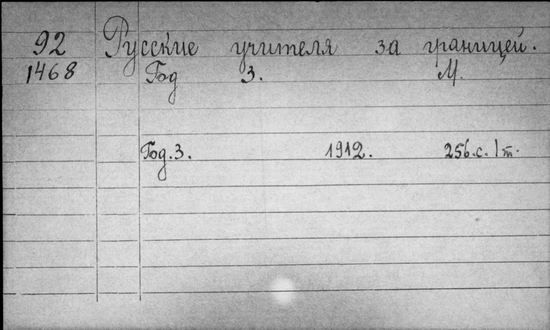 92 Русские учителя за границей.
1468 Год 3. М.
Год. 3. 1912. 256.с. 1 т.